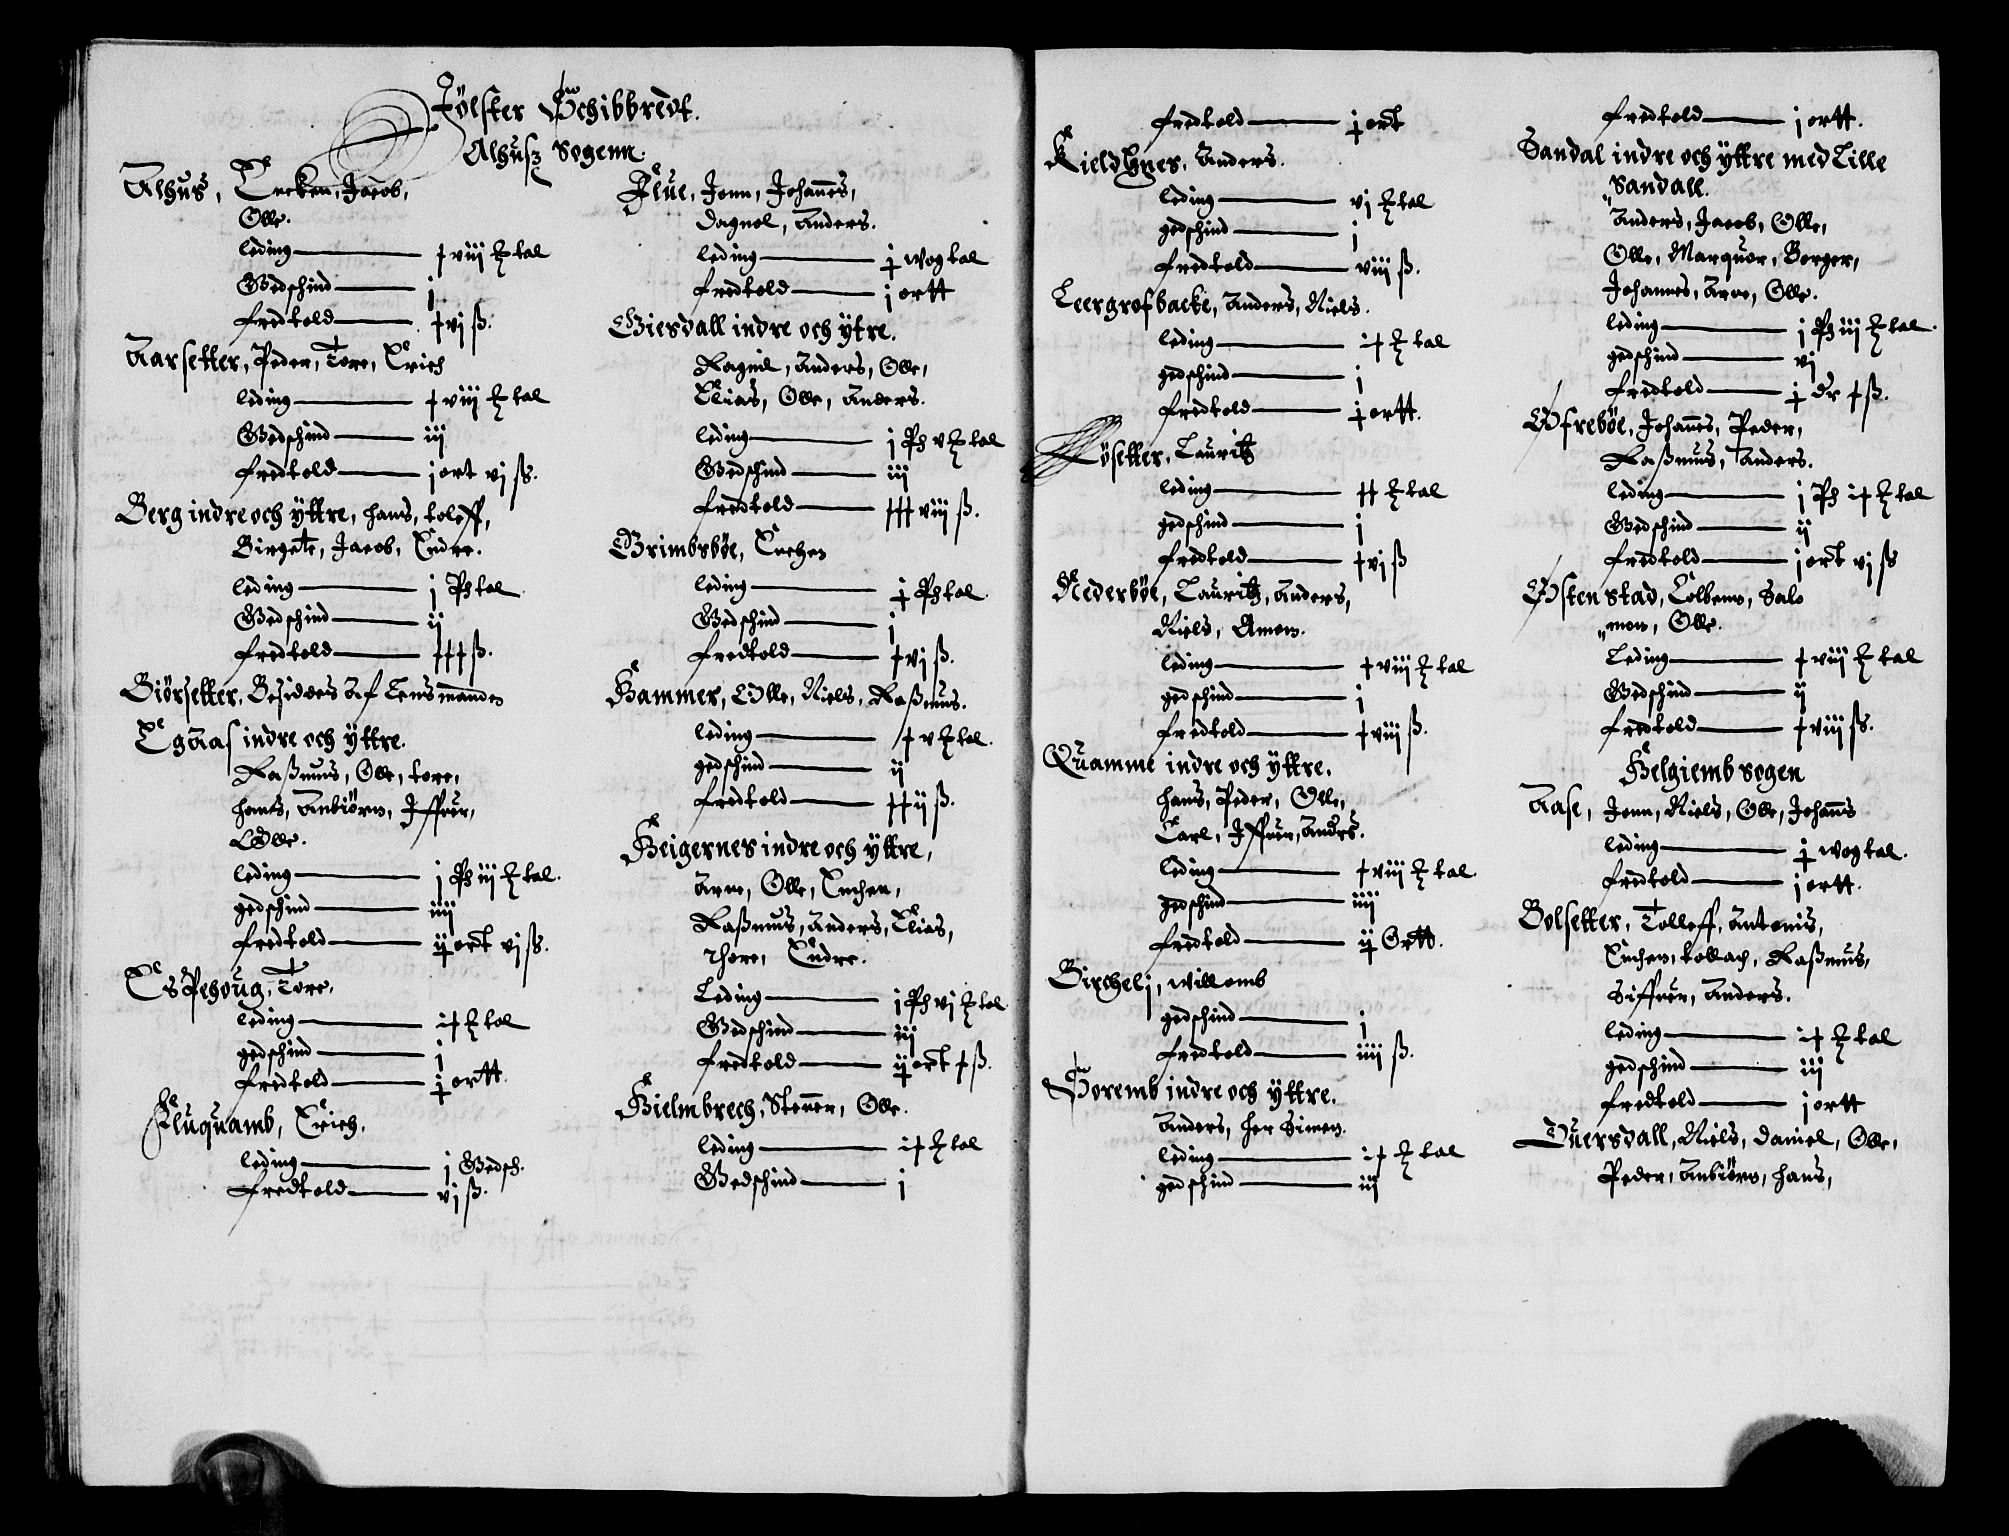 Jölster Schibbredt.
Alhusz Sogenn.
Alhus, Encken, Jacob,
Olle.
leding — x viij ℔ tal
Gedschind — j
fredtold — x vj ß.
Aarsetter, Peder, Tore, Erich
leding — x viij ℔ tal
Gedschind — iij
fredtold — j ort vj ß.
Berg indre och yttre, Hans, toleff,
Birgete, Jacob, Endre.
leding — j Ph tal
Gedschind — ij
fredtold — xxx ß.
Biörsetter, Besiddes Af Lensmanden
Egaas indre och yttre.
Raßmus, Olle, tore,
Hans, Anbiörn, Iffuer,
Olle.
leding — j Ph iij ℔ tal.
gedschind — iiij
fredtold — ij ort vj ß.
Espehoug, Tore,
leding — ix ℔ tal
gedschind — j
fredtold — j ortt.
Fluquamb, Erich,
leding — j Gedsch.
fredtold — vj ß.
Flue, Jonn, Johannes,
Dagnel, Anders.
leding — j wog tal
fredtold — j ortt
Giersdall indre och ytre.
Ragnil, Anders, Olle,
Elias, Olle, Anders.
leding — j Ph v ℔ tal
Gedschind — iij
fredtold — xxx viij ß.
Grimbsböe, Enchen
leding — j Ph tal.
Gedschind — j
fredtold — x vj ß.
Hammer, Olle, Niels, Raßmus.
leding — x v ℔ tal.
gedschind — ij
fredtold — xx ij ß.
Heigernes indre och yttre,
Arne, Olle, Enchen,
Raßmus, Anders, Elias,
Thore, Endre.
Leding — j Ph vj ℔ tal
Gedschind — iij
fredtold — ij ort x ß.
Hielmbrech, Stener, Olle.
leding — ix ℔ tal
Gedschind — j
fredtold — j ort
Kieldsnes, Anders.
leding — vj ℔ tal
gedschind — j
fredtold — viij ß.
Leergrofbacke, Anders, Niels.
leding — ix ℔ tal
gedschind — j
fredtold — j ortt.
Lösetter, Lauritz
leding — xx ℔ tal
gedschind — j
fredtold — x vj ß
Nederböe, Lauritz, Anders,
Niels, Amon.
leding — x viij ℔ tal
gedschind — j
fredtold — x viij ß.
Quamme indre och yttre.
Hans, Peder, Olle,
Carl, Iffuer, Anders.
leding — x viij ℔ tal
gedschind — iiij
fredtold — ij Ortt.
Birchelj, Willomb
gedschind — j
fredtold — iiij ß.
Soremb indre och yttre.
Anders, Her Simon.
leding — ix ℔ tal
gedschind — iij
fredtold — j ortt.
Sandal indre och yttre med Lille
Sandall.
Anders, Jacob, Olle,
Olle, Marquor, Borger,
Johannes, Arne, Olle.
leding — j Ph iij ℔ tal.
gedschind — vj
fredtold — j Dr x ß.
Ofreböe, Johannes, Peder,
Raßmus, Anders.
leding — j Ph ix ℔ tal
Gedschind — ij
fredtold — j ort vj ß
Ostenstad, Colbenn, Salo
mon, Olle.
Leding — x viij ℔ tal
Gedschind — ij
fredtold — x viij ß.
Helgiemb sogen
Aase, Jonn, Niels, Olle, Johans
leding — j wog tal.
fredtold — j ortt.
Bolsetter, Tolleff, Antonis,
Enchen, tollach, Raßmus,
Siffuer, Anders.
leding — ix ℔ tal
gedschind — iij
fredtold — j ortt
Duersdall, Niels, Daniel, Olle,
Peder, Anbiörn, Hans,